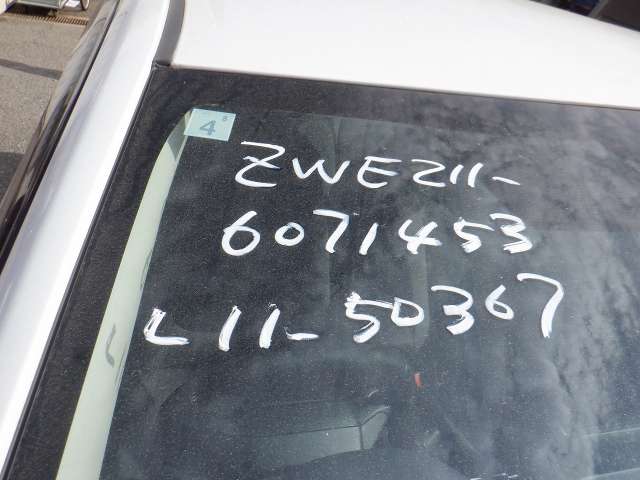 8
4
ZWE211-
6071453
L11-50367